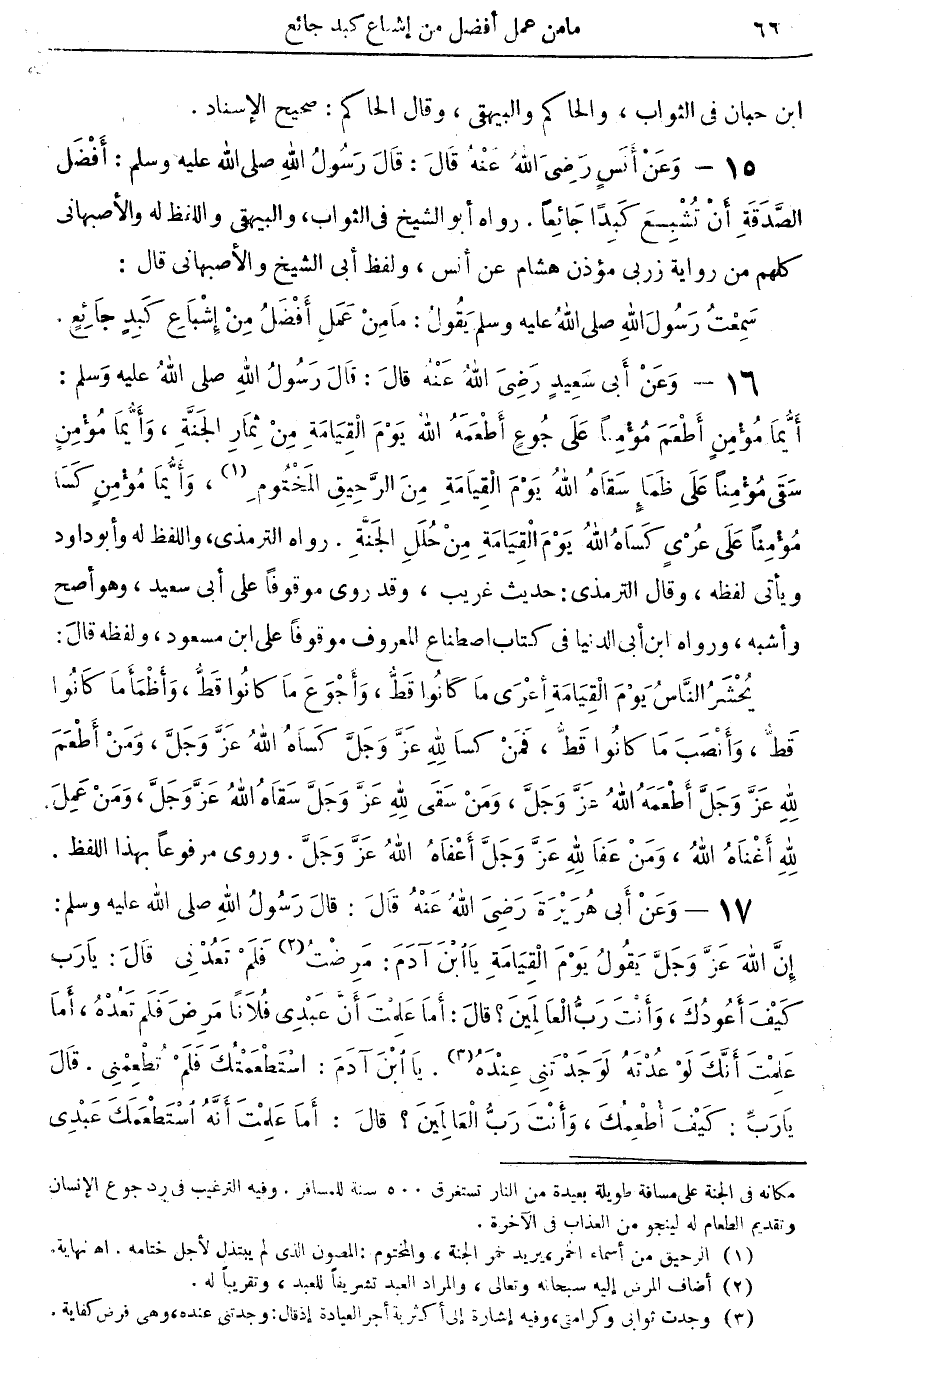 ٦٦ مامن عمل أفضل من إشباع كبد جائع
ابن حبان فى الثواب ، والحاكم والبيهقى ، وقال الحاكم : صحيح الإسناد .
١٥ — وَعَنْ أَنَسٍ رَضِىَ اللهُ عَنْهُ قَالَ : قَالَ رَسُولُ اللهِ صلى الله عليه وسلم : أَفْضَل
الصَّدَقَةِ أَنْ تُشْبِعَ كَبِدًا جَائِعاً . رواه أبو الشيخ فى الثواب، والبيهقى واللفظ له والأصبهانى
كلهم من رواية زربى مؤذن هشام عن أنس ، ولفظ أبى الشيخ والأصبهانى قال :
سَمِعْتُ رَسُولَ اللهِ صلى اللهُ عليه وسلم يَقُولُ : مَامِنْ عَمَلٍ أَفْضَلُ مِنْ إِشْبَاعِ كَبِدٍ جَائِعٍ .
١٦ — وَعَنْ أَبى سَعِيدٍ رَضِىَ اللهُ عَنْهُ قالَ : قَالَ رَسُولُ اللهِ صلى اللهُ عليه وَسلم :
أَيُّمَا مُؤْمِنٍ أَطْعَمَ مُؤْمِناً عَلَى جُوعٍ أَطْعَمَهُ اللهُ يَوْمَ القِيَامَةِ مِنْ ثِمَارِ الجَنَّةِ ، وَأَيُّمَا مُؤْمِنٍ
سَقَى مُؤْمِناً عَلَى ظَمَإٍ سَقَاهُ اللهُ يَوْمَ الْقِيَامَةِ مِنَ الرَّحِيقِ المَخْتُومِ (١) ، وَأَيُّمَا مُؤْمِنٍ كَسَا
مُؤْمِناً عَلَى عُرْىٍ كَسَاهُ اللهُ يَوْمَ الْقِيَامَةِ مِنْ حُلَلِ الجَنَّةِ . رواه الترمذى، واللفظ له وأبو داود
ويأتى لفظه ، وقال الترمذى: حديث غريب ، وقد روى موقوفاً على أبى سعيد ، وهو أصح
وأشبه ، ورواه ابن أبى الدنيا فى كتاب اصطناع المعروف موقوفاً على ابن مسعود ، ولفظه قالَ :
يُحْشَرُ النَّاسُ يَوْمَ الْقِيَامَةِ أَعْرَى مَا كَانُوا قَطُّ ، وَأَجْوَعَ مَا كانُوا قَطُّ ، وَأَظْمَأَ مَا كَانُوا
قَطُّ ، وَأَنْصَبَ مَا كانُوا قَطُّ ، فَمَنْ كَسَا لِلهِ عَزَّ وَجَلَّ كَسَاهُ اللهُ عَزَّ وَجَلَّ ، وَمَنْ أَطْعَمَ
لِلهِ عَزَّ وَجَلَّ أَطْعَمَهُ اللهُ عَزَّ وَجَلَّ ، وَمَنْ سَقَى لِلهِ عَزَّ وَجَلَّ سَقَاهُ اللهُ عَزَّ وَجَلَّ ، وَمَنْ عَمِلَ
لِلهِ أَغْنَاهُ اللهُ ، وَمَنْ عَفَا لِلهِ عَزَّ وَجَلَّ أَعْفَاهُ اللهُ عَزَّ وَجَلَّ . وروى مرفوعاً بهذا اللفظ .
١٧ — وَعَنْ أَبى هُرَيْرَةَ رَضِىَ اللهُ عَنْهُ قَالَ : قالَ رَسُولُ اللهِ صلى الله عليه وسلم :
إِنَّ اللهَ عَزَّ وَجَلَّ يَقُولُ يَوْمَ الْقِيَامَةِ يَاابْنَ آدَمَ : مَرِضْتُ (٢) فَلَمْ تَعُدْنِى قَالَ : يَارَب
كَيْفَ أَعُودُكَ ، وَأَنْتَ رَبُّ الْعَالَمِينَ ؟ قالَ : أَمَا عَلِمْتَ أَنَّ عَبْدِى فُلَانًا مَرِضَ فَلَمْ تَعُدْهُ ، أَمَا
عَلِمْتَ أَنَّكَ لَوْ عُدْتَهُ لَوَجَدْتَنِى عِنْدَهُ (٣) . يَا ابْنَ آدَمَ : اسْتَطْعَمْتُكَ فَلَمْ تُطْعِمْنِى . قَالَ
يَارَبِّ : كَيْفَ أُطْعِمُكَ ، وَأَنْتَ رَبُّ الْعَالَمِينَ ؟ قالَ : أَمَا عَلِمْتَ أَنَّهُ اسْتَطْعَمَكَ عَبْدِى
مكانه فى الجنة على مسافة طويلة بعيدة من النار تستغرق ٥٠٠ سنة للمسافر . وفيه الترغيب فى رد جوع الإنسان
وتقديم الطعام له لينجو من العذاب فى الآخرة .
(١) الرحيق من أسماء الخمر، يريد خمر الجنة ، والمختوم : المصون الذى لم يبتذل لأجل ختامه . اه نهاية.
(٢) أضاف المرض إليه سبحانه وتعالى ، والمراد العبد تشريفاً للعبد ، وتقريباً له .
(٣) وجدت ثوابى وكرامتى، وفيه إشارة إلى أكثرية أجر العيادة إذ قال : وجدتنى عنده، وهى فرض كفاية .